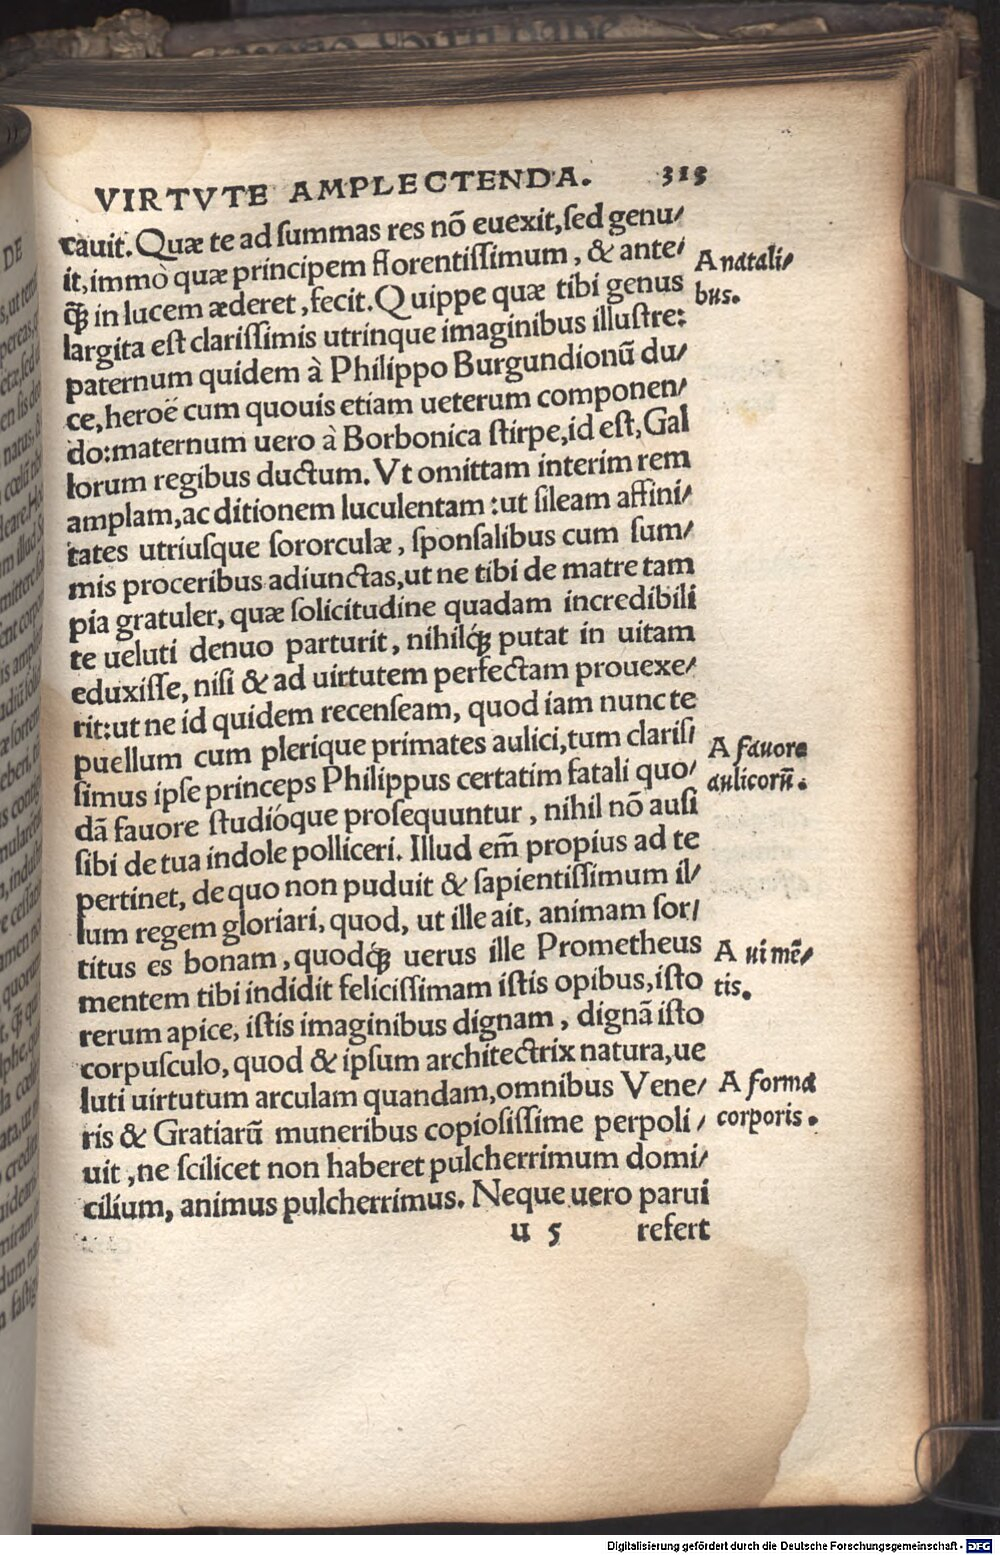 VIRTVTE AMPLECTENDA. 313
cauit. Quæ te ad ſummas res nõ euexit, ſed genu⸗
it, immò quæ principem florentiſſimum, & ante⸗
ꝗ̃ in lucem æderet, fecit. Quippe quæ tibi genus
largita eſt clariſſimis utrinque imaginibus illuſtre:
paternum quidem à Philippo Burgundionũ du⸗
ce, heroë cum quouis etiam ueterum componen⸗
do: maternum uero à Borbonica ſtirpe, id eſt, Gal
lorum regibus ductum. Vt omittam interim rem
amplam, ac ditionem luculentam: ut ſileam affini⸗
tates utriuſque ſororculæ, ſponſalibus cum ſum⸗
mis proceribus adiunctas, ut ne tibi de matre tam
pia gratuler, quæ ſolicitudine quadam incredibili
te ueluti denuo parturit, nihilq́ꝫ putat in uitam
eduxiſſe, niſi & ad uirtutem perfectam prouexe⸗
rit: ut ne id quidem recenſeam, quod iam nunc te
puellum cum plerique primates aulici, tum clariſi
ſimus ipſe princeps Philippus certatim fatali quo⸗
dã fauore ſtudióque proſequuntur, nihil nõ auſi
ſibi de tua indole polliceri. Illud em̃ propius ad te
pertinet, de quo non puduit & ſapientiſſimum il⸗
lum regem gloriari, quod, ut ille ait, animam ſor⸗
titus es bonam, quodq́ꝫ uerus ille Prometheus
mentem tibi indidit feliciſſimam iſtis opibus, iſto
rerum apice, iſtis imaginibus dignam, dignã iſto
corpuſculo, quod & ipſum architectrix natura, ue
luti uirtutum arculam quandam, omnibus Vene⸗
ris & Gratiarũ muneribus copioſiſſime perpoli⸗
uit, ne ſcilicet non haberet pulcherrimum domi⸗
cilium, animus pulcherrimus. Neque uero parui
u 5 refert
A natali⸗
bus.
A fauore
aulicorũ.
A ui mẽ⸗
tis.
A forma
corporis.
DE
Digitalisierung gefördert durch die Deutsche Forschungsgemeinschaft - DFG